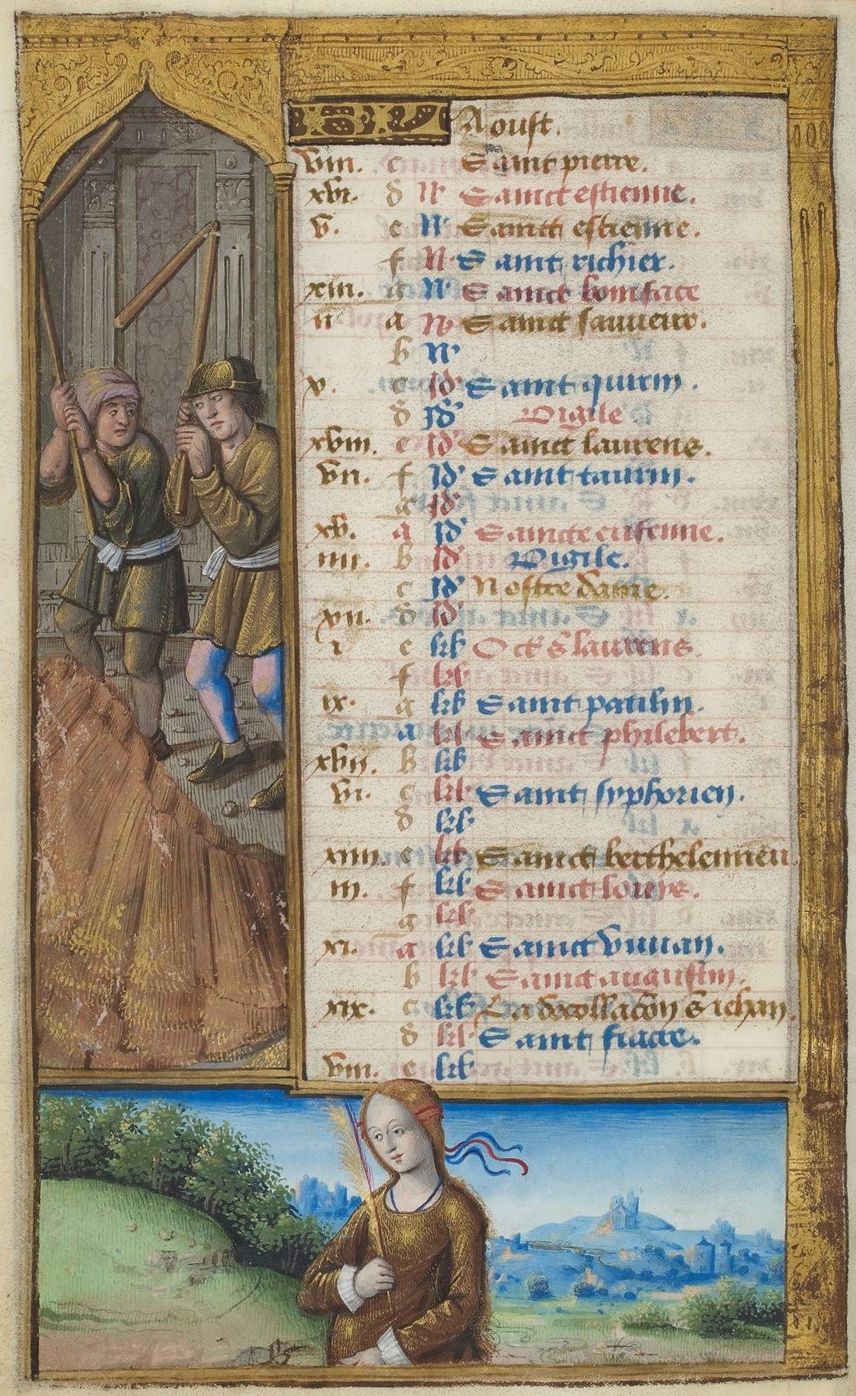 Aoust.
viii. c Sainct pierre.
xvi. d N Sainct estienne.
v. e N Sainct estienne.
f N Sainct richier.
xiii. g N Sainct boniface
ii a N Sainct sauveur.
b N
x. c Id Sainct quirin.
d Id Vigile
xviii. e Id Sainct laurens.
vii. f Id Sainct taurin.
g Id
xv. a Id Saincte
iiii. b Id Vigile.
c Id Nostre dame.
xii. d Id
i e klr Oct s laurens.
f klr
ix. g klr Sainct
a klr Sainct philebert.
xvii. b klr
vi. c klr Sainct syphorien.
d klr
xiiii. e klr Sainct berthelemieu.
iii. f klr Sainct loys.
g klr
xi. a klr Sainct
b klr Sainct augustin.
xix. c klr La decollacon s iehan.
d klr Sainct fiacre.
viii. e klr